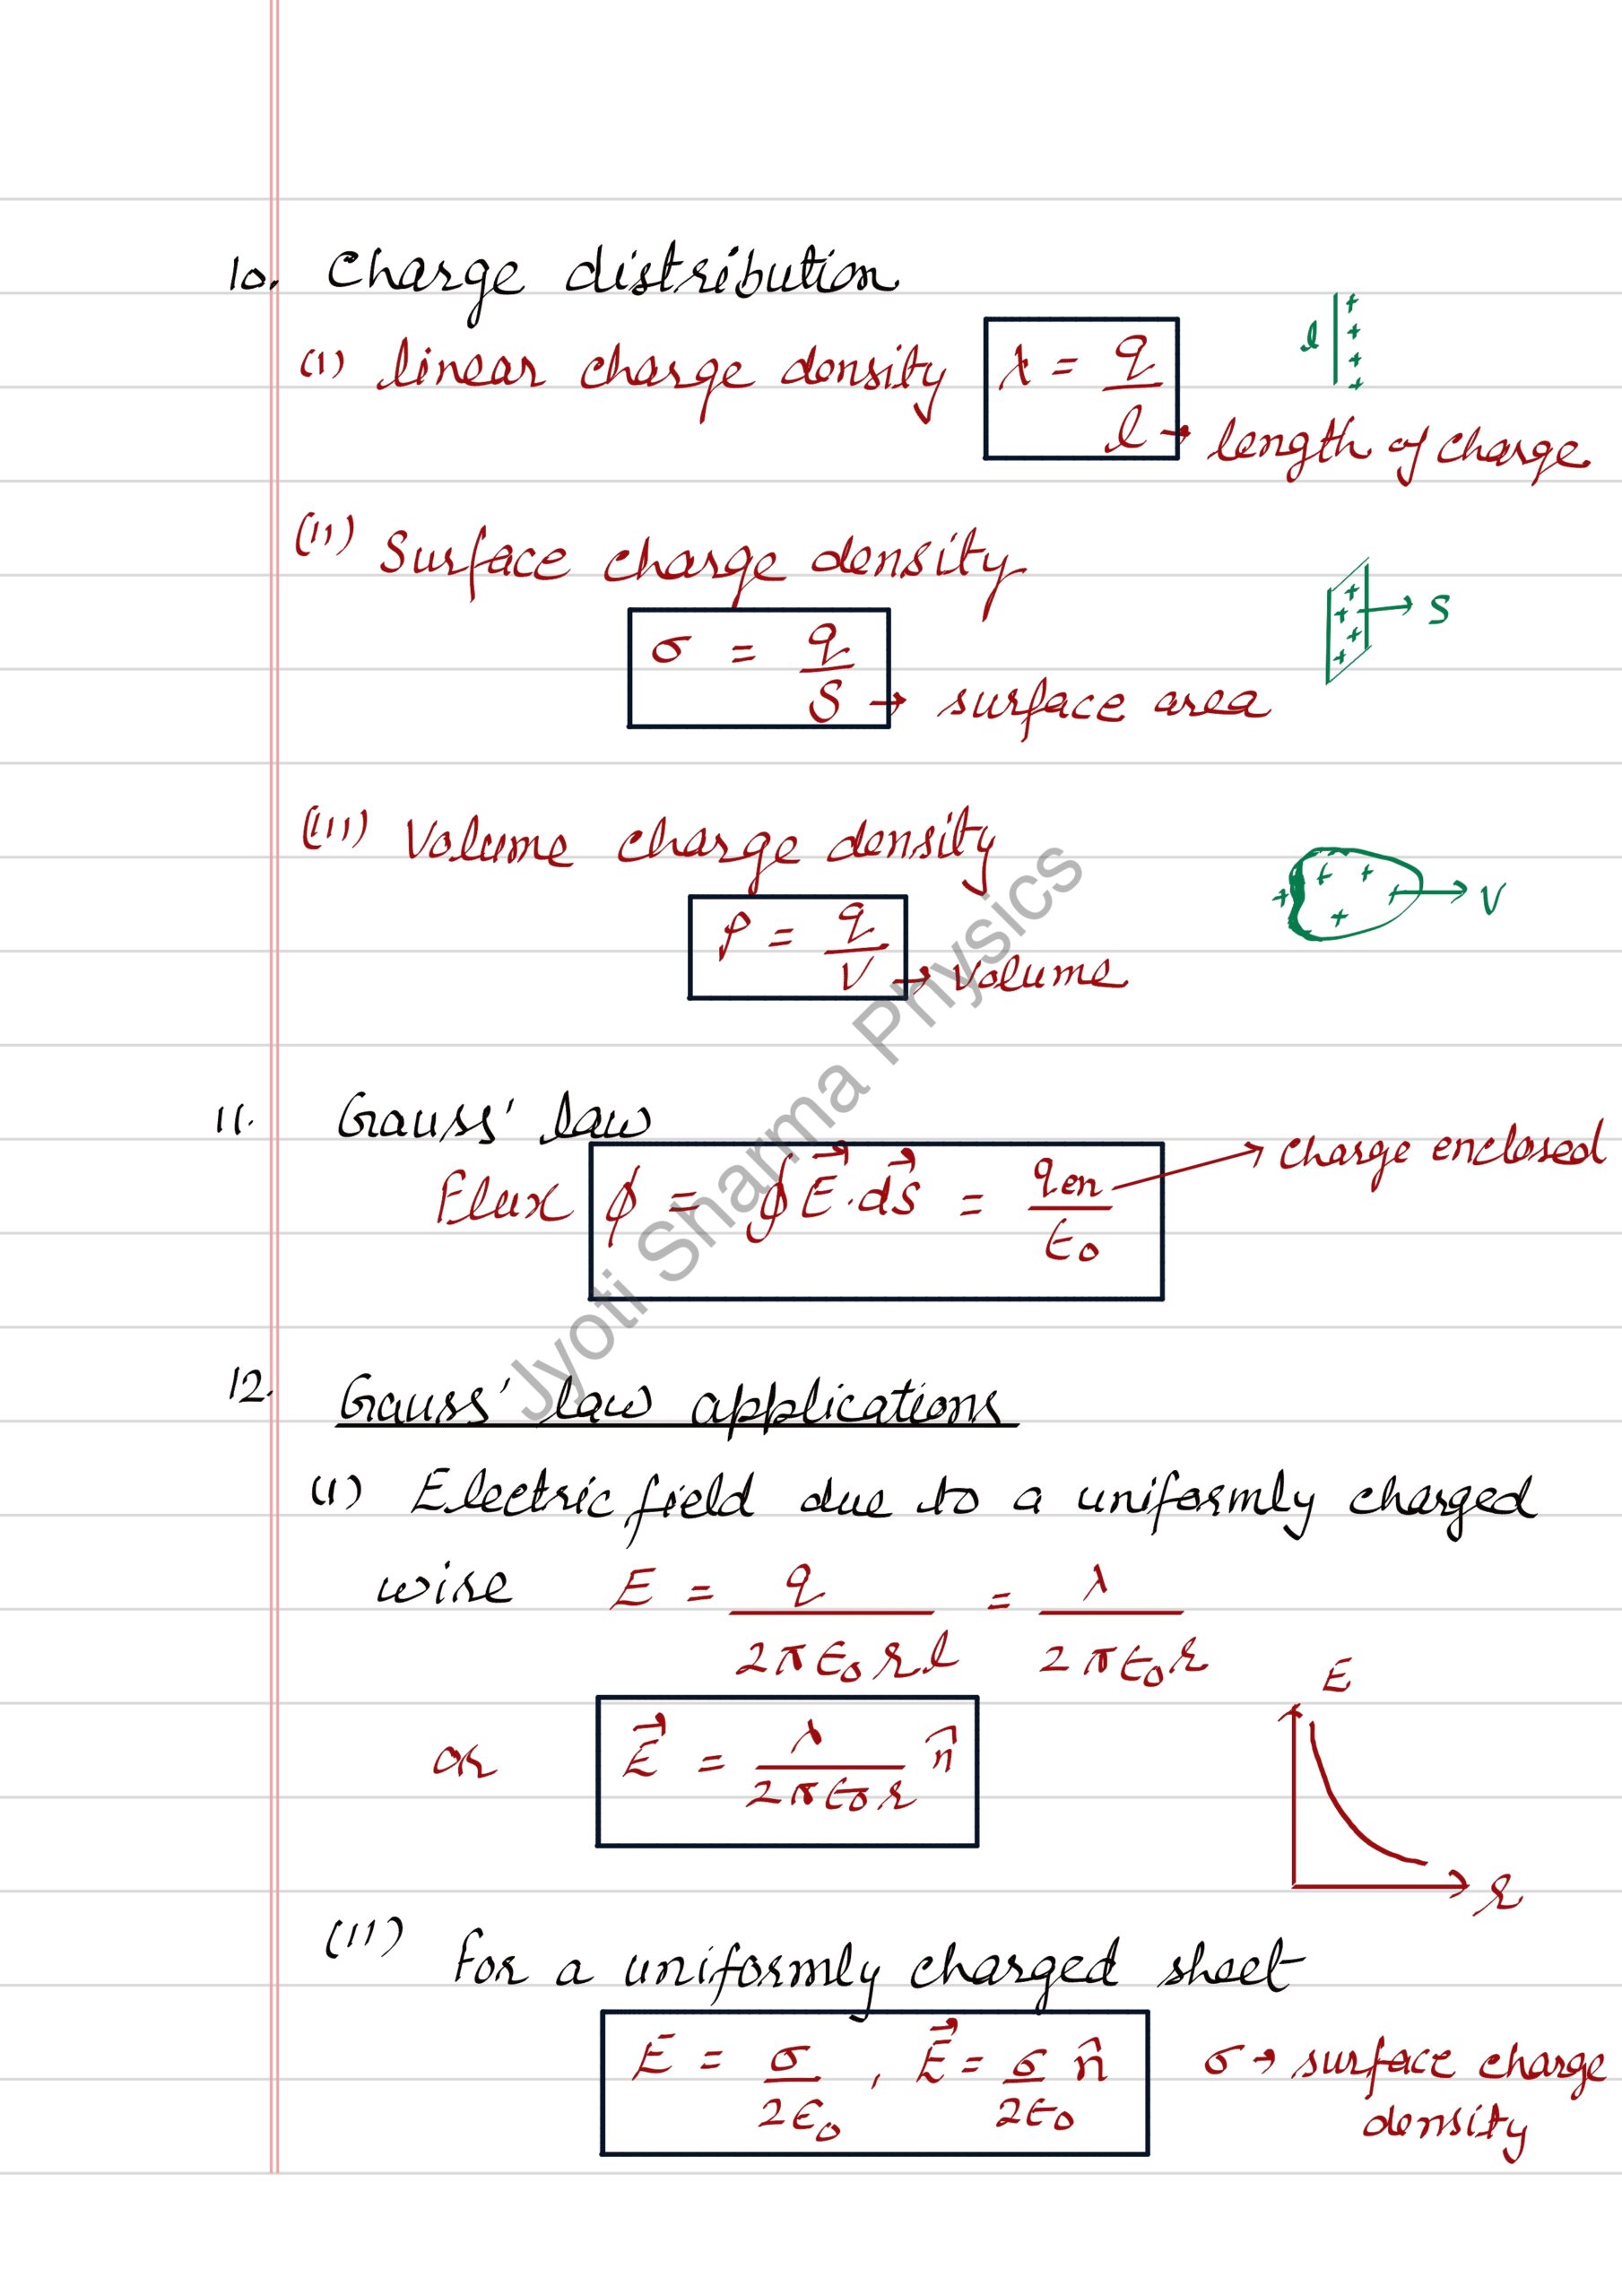 10. Charge distribution
(i) linear charge density λ = q/l → length of charge
l + + + +
(ii) Surface charge density
σ = q/S → surface area
+ + + + → S
(iii) Volume charge density
ρ = q/V → volume
+ + + + + → V
11. Gauss' law
Flux φ = ∮ E⃗ . ds⃗ = qen/ε₀ → charge enclosed
12. Gauss' law applications
(i) Electric field due to a uniformly charged
wire E = q/2πε₀rl = λ/2πε₀r
or E⃗ = λ/2πε₀r n̂
E
r
(ii) For a uniformly charged sheet
E = σ/2ε₀ , E⃗ = σ/2ε₀ n̂ σ → surface charge
density
Jyoti Sharma Physics